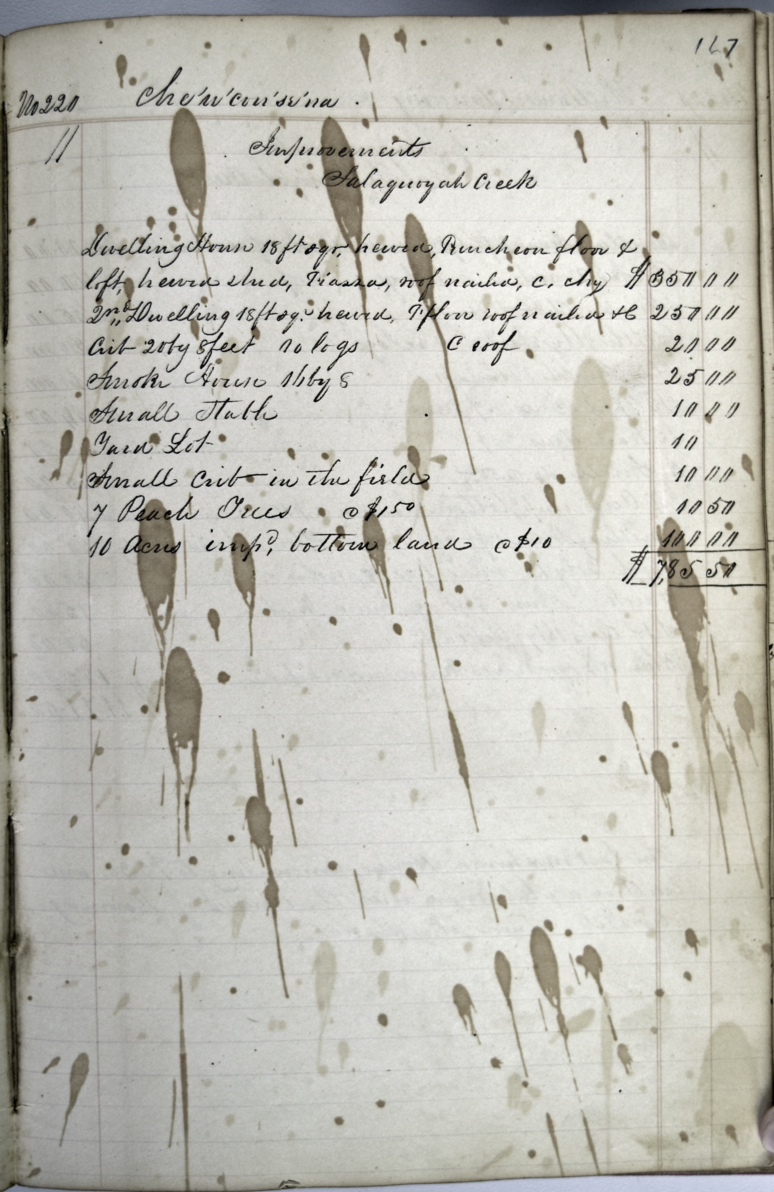 167
No 220 Che'u'con'se'na
11 Improvements
Salaquoyah Creek
Dwelling House 18 ft sqr, hewed, Puncheon floor &
loft, hewed shed, Piazza, roof nailed, c. chy $ 350 00
2nd, Dwelling 18 ft sq. hewed, P floor roof nailed &c 250 00
Crib 20 by 8 feet 10 logs C roof 20 00
Smoke House 16 by 8 25 00
Small Stable 10 00
Yard Lot 10
Small Crib in the field 10 00
7 Peach Trees @ $1.50 10 50
10 Acres impd, bottom land @ $10 100 00
$ 785 50